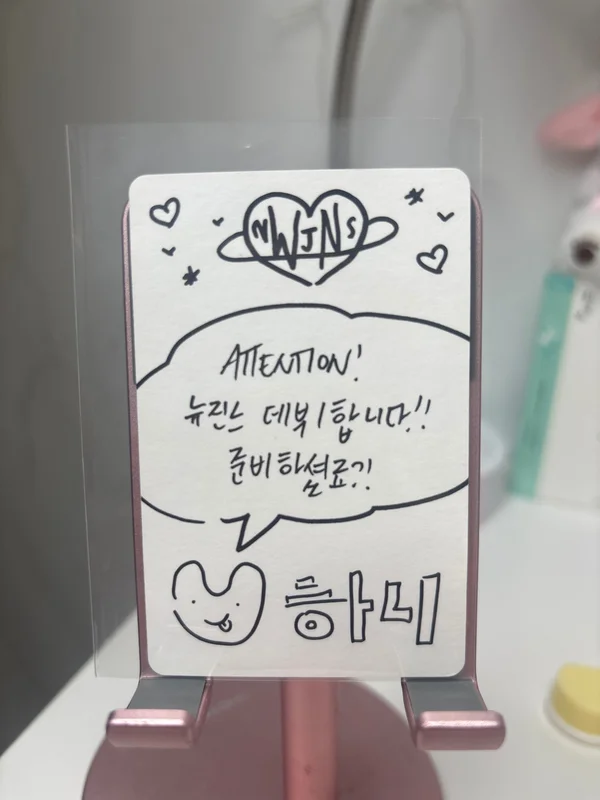 NWJNS
ATTENTION!
뉴진스 데뷔합니다!!
준비하셜료?!
하니